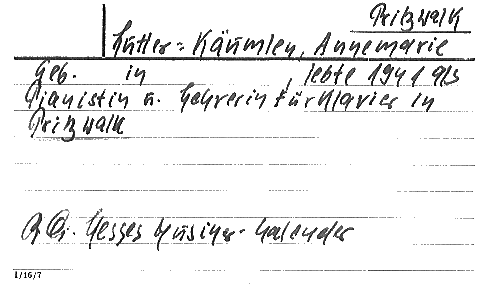 Pritzwalk
Hutter = Käumlen, Annemarie
Geb. in , lebte 1941 als
Pianistin u. Lehrerin für Klavier in
Pritzwalk
Hesses Musiker-Kalender
1/16/7